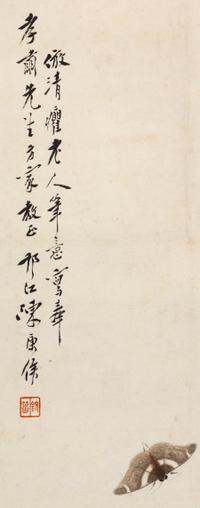 倣清癯老人筆意寫奉
孝肅先生方家教正邗江陳康侯